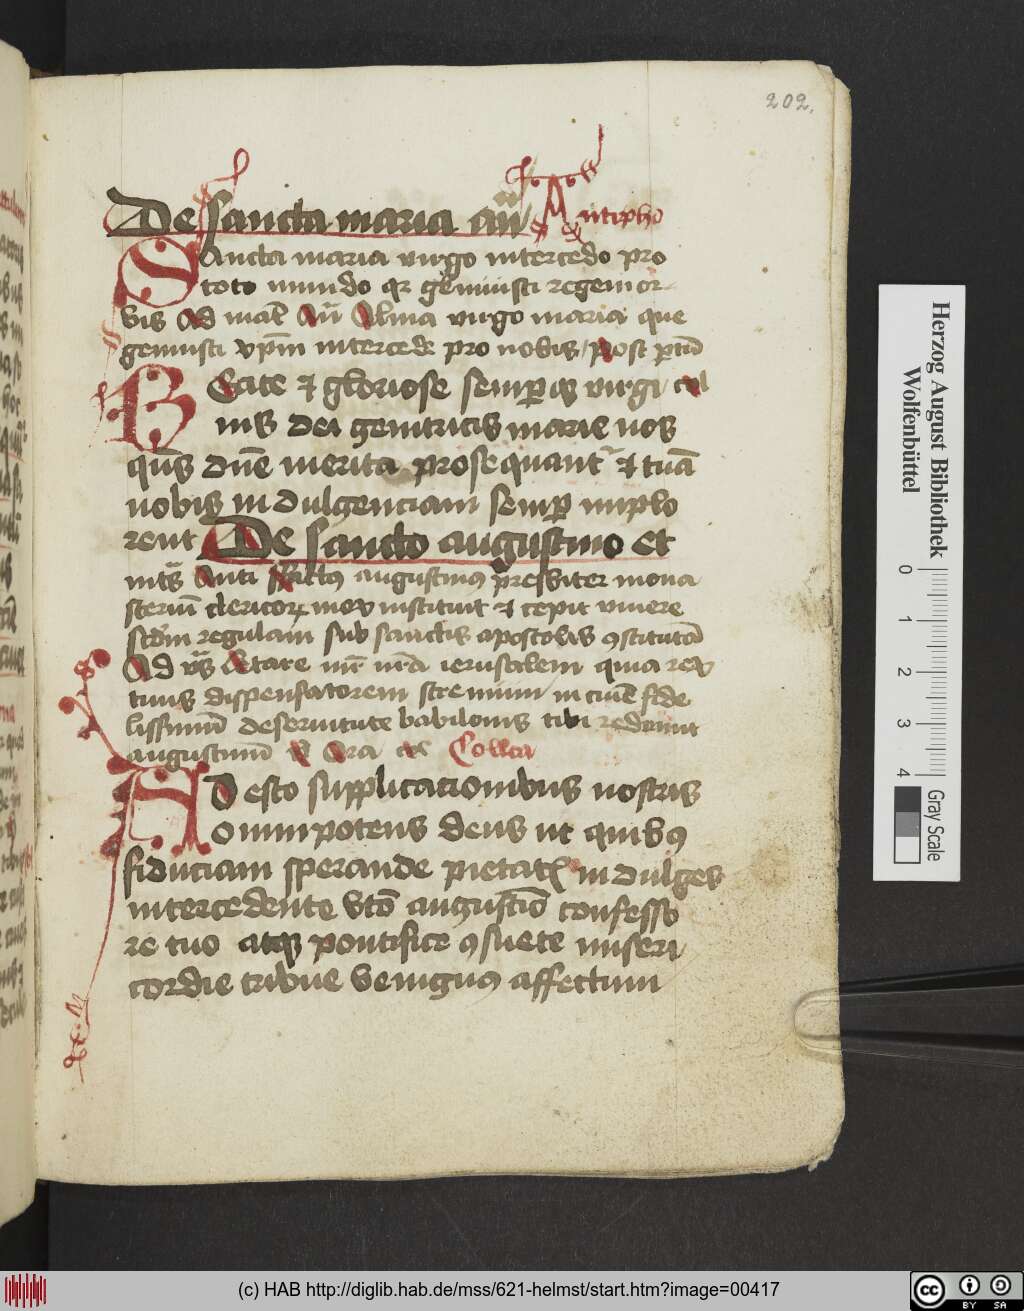 202.
De sancta maria añ Antipho
Sancta maria virgo intercedo pro
toto mundo qr genuisti regem or
bis Ad mat̄ Añ Alma virgo maria que
genuisti xp̄m intercede pro nobis post
Bеate et gloriose semper virgi
nis dei genitricis marie nos
qūs dn̄e merita prosequant et tuā
nobis indulgenciam semp implo
rent De sancto augustino et
Anti augustinus presbiter mona
sterium clericorum mox instituit et cepit vivere
scdm regulam sub sanctis apostolis
Ad letare mr nr̄a ierusalem quia rex
tuus dispensatorem et civē fide
lissimum de servitute babilonis tibi redimit
augustinum Colleta
Adesto supplicacionibus nostris
omnipotens deus ut quibus
fiduciam sperande pietatis indulges
intercedente bt̄o augustīo confesso
re tuo atqꝫ pontifice ꝯsuete miseri
cordie tribue benignus affectum
Herzog August Bibliothek
Wolfenbüttel
0 1 2 3 4
Gray Scale
(c) HAB http://diglib.hab.de/mss/621-helmst/start.htm?image=00417
cc BY SA